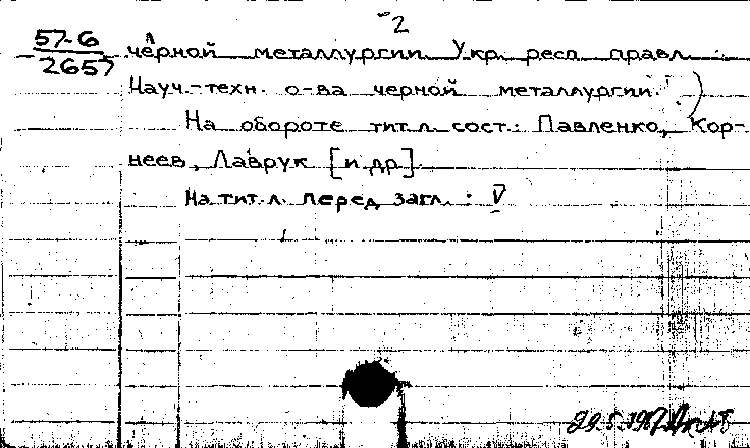 -2
57-6
2657
чёрной металлургии Укр. респ. правл.
Науч.-техн. о-ва черной металлургии.)
На обороте тит. л. сост.: Павленко, Кор-
неев, Лаврук [и др].
На тит. л. перед загл.: V